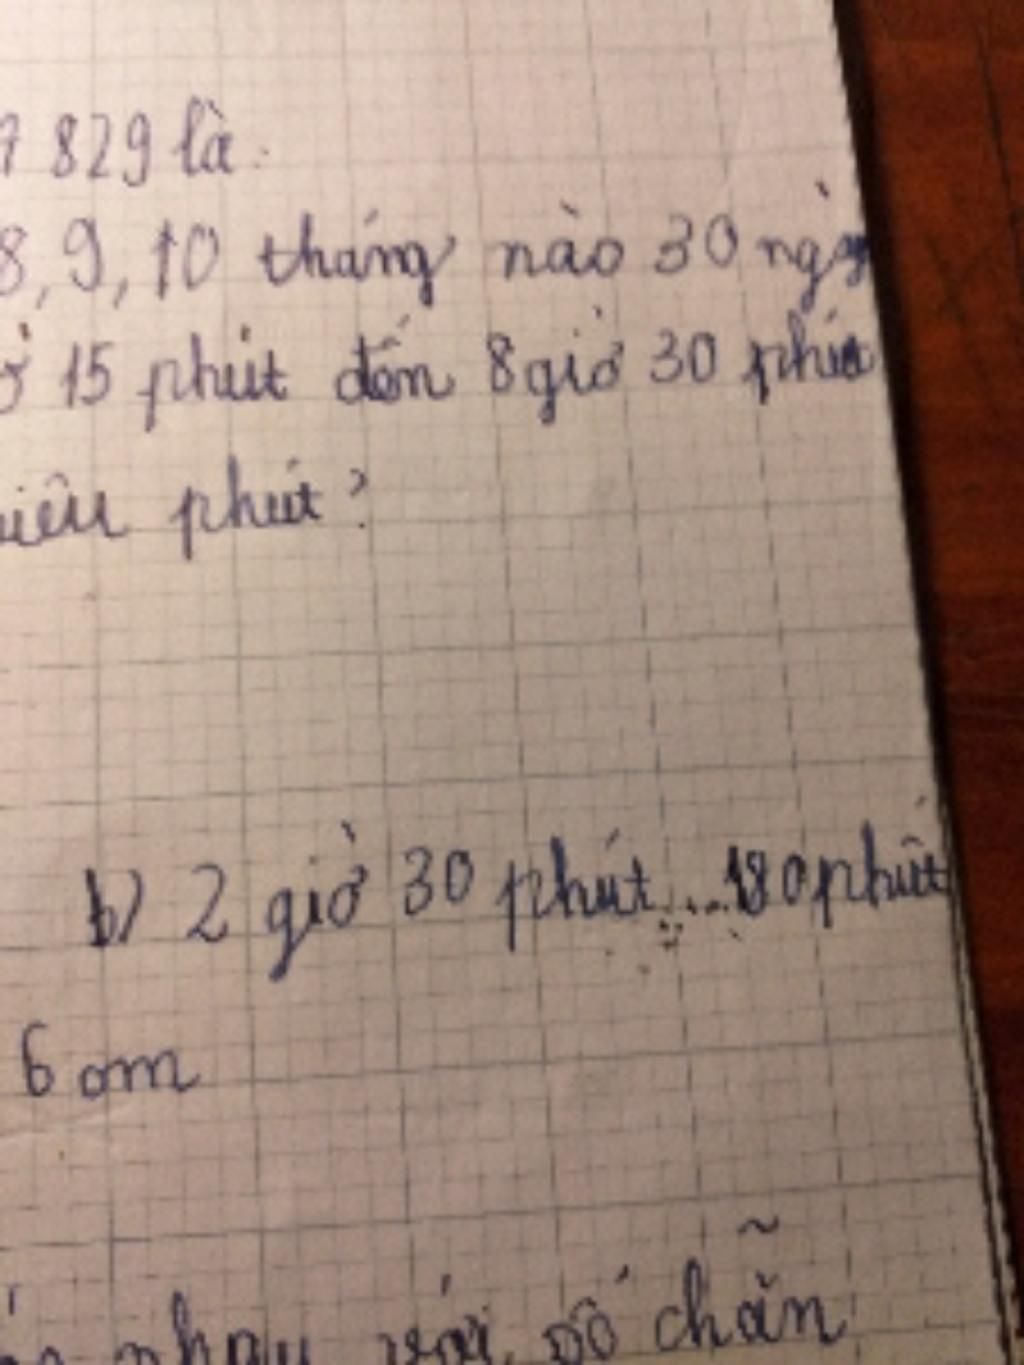 7 829 là:
8, 9, 10 tháng nào 30 ngày
15 phút đến 8 giờ 30 phút
phút?
b) 2 giờ 30 phút ... 180 phút
6 cm
nhau với số chẵn